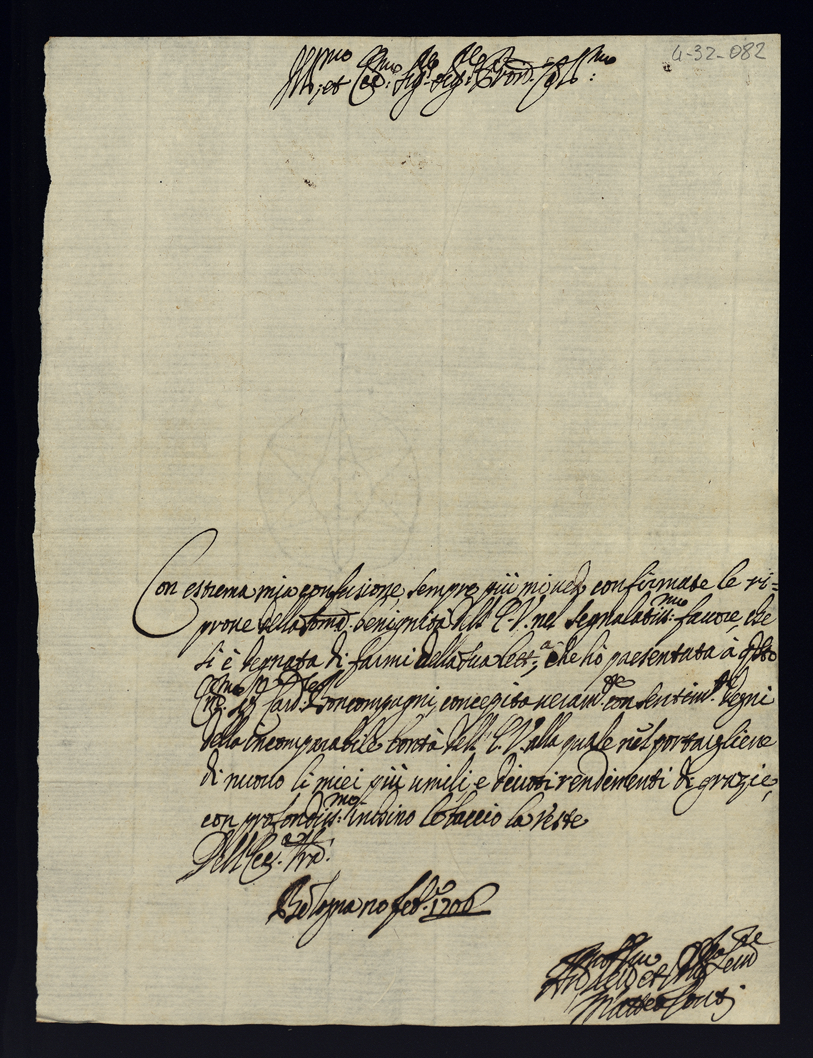 4-32-082
Ill.mo, et Ecc.mo Sig.re Sig.re Pron. Col.mo
Con estrema mia confusione sempre più mi vedo confirmate le ri=
prove della somma benignità dell'E.V. nel segnalatiss.mo favore, che
si è degnata di farmi della sua lett.a, che hò presentata à q.sto
Em.o Sig.r Card.l Boncompagni, concepita veram.te con sentim.ti degni
della incomparabile bontà dell'E.V. alla quale nel portargliene
di nuovo li miei più umili e devoti rendimenti di grazie,
con profondiss.mo inchino le faccio la veste
Dell'Ecc.
Bologna 10 feb.o 1706